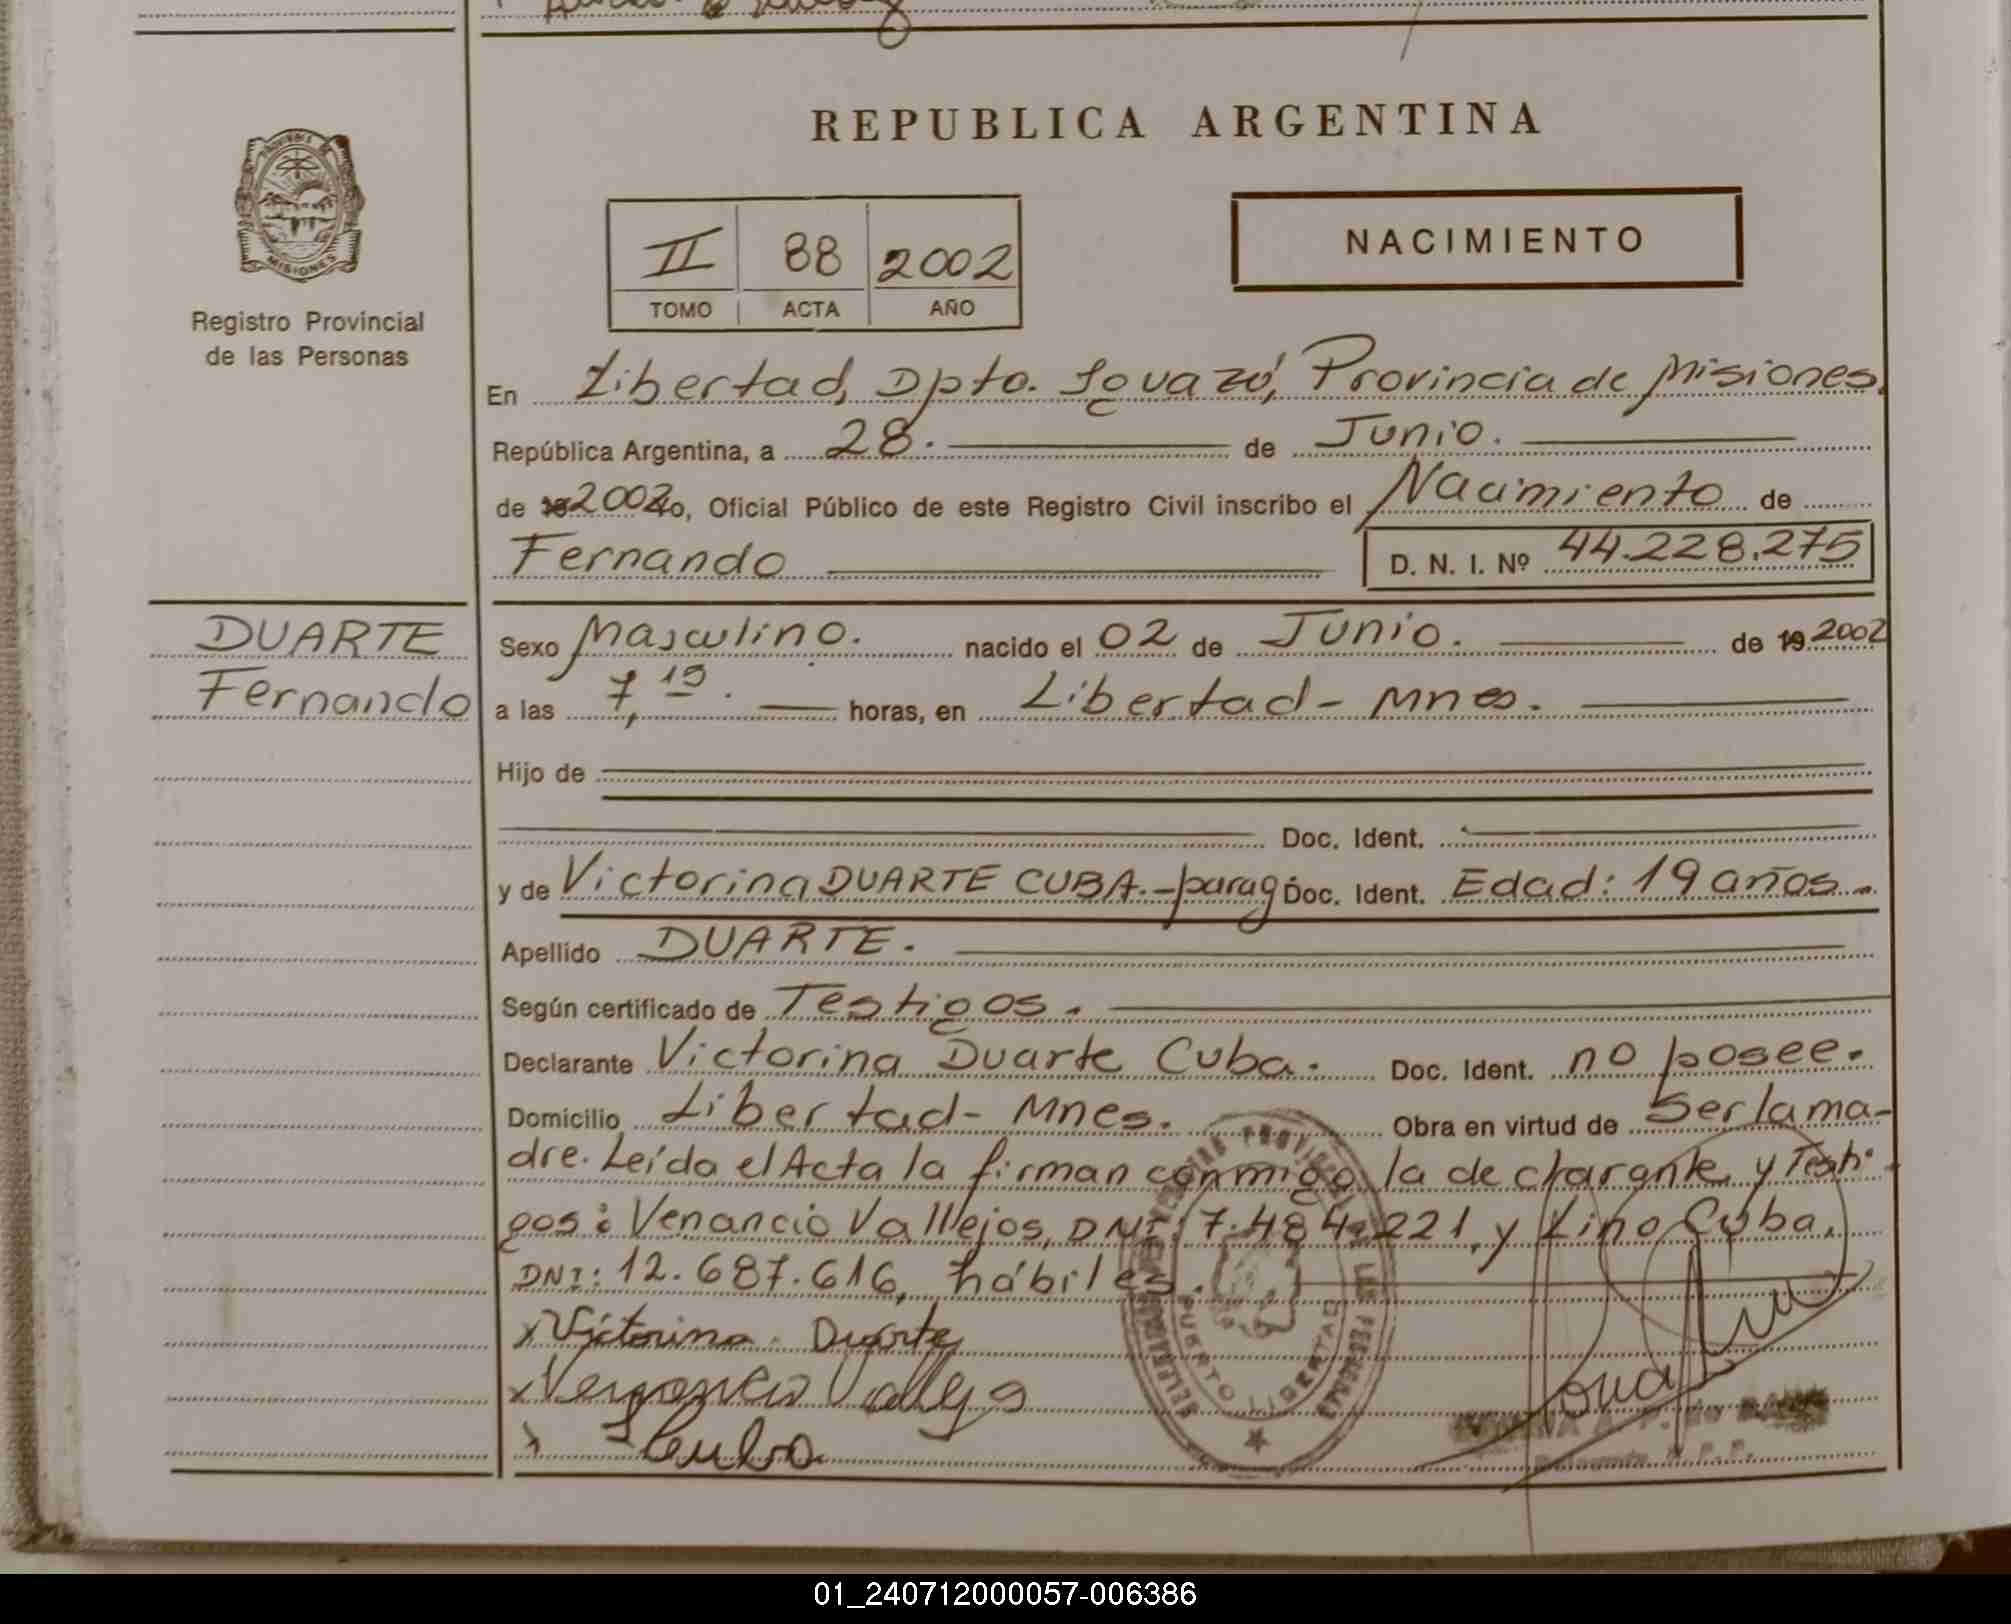 REPUBLICA ARGENTINA
MISIONES
Registro Provincial
de las Personas
II 88 2002
TOMO ACTA AÑO
NACIMIENTO
En Libertad, Dpto. Iguazú, Provincia de Misiones.
República Argentina, a 28. de Junio.
de 2002 yo, Oficial Público de este Registro Civil inscribo el Nacimiento de
Fernando D. N. I. Nº 44.228.275
DUARTE
Fernando
Sexo Masculino. nacido el 02 de Junio. de 19 2002
a las 7,15. horas, en Libertad - Mnes.
Hijo de
Doc. Ident.
y de Victorina DUARTE CUBA.- parag Doc. Ident. Edad: 19 años.-
Apellido DUARTE.
Según certificado de Testigos.
Declarante Victorina Duarte Cuba. Doc. Ident. no posee.
Domicilio Libertad - Mnes. Obra en virtud de Ser la ma-
dre. Leída el Acta la firman conmigo la declarante y Testi-
gos: Venancio Vallejos, DNI: 7.484.221, y Lino Cuba,
DNI: 12.687.616, hábiles.
x Victorina Duarte
x Venancio Vallejo
x Cuba
PUERTO LIBERTAD
01_240712000057-006386